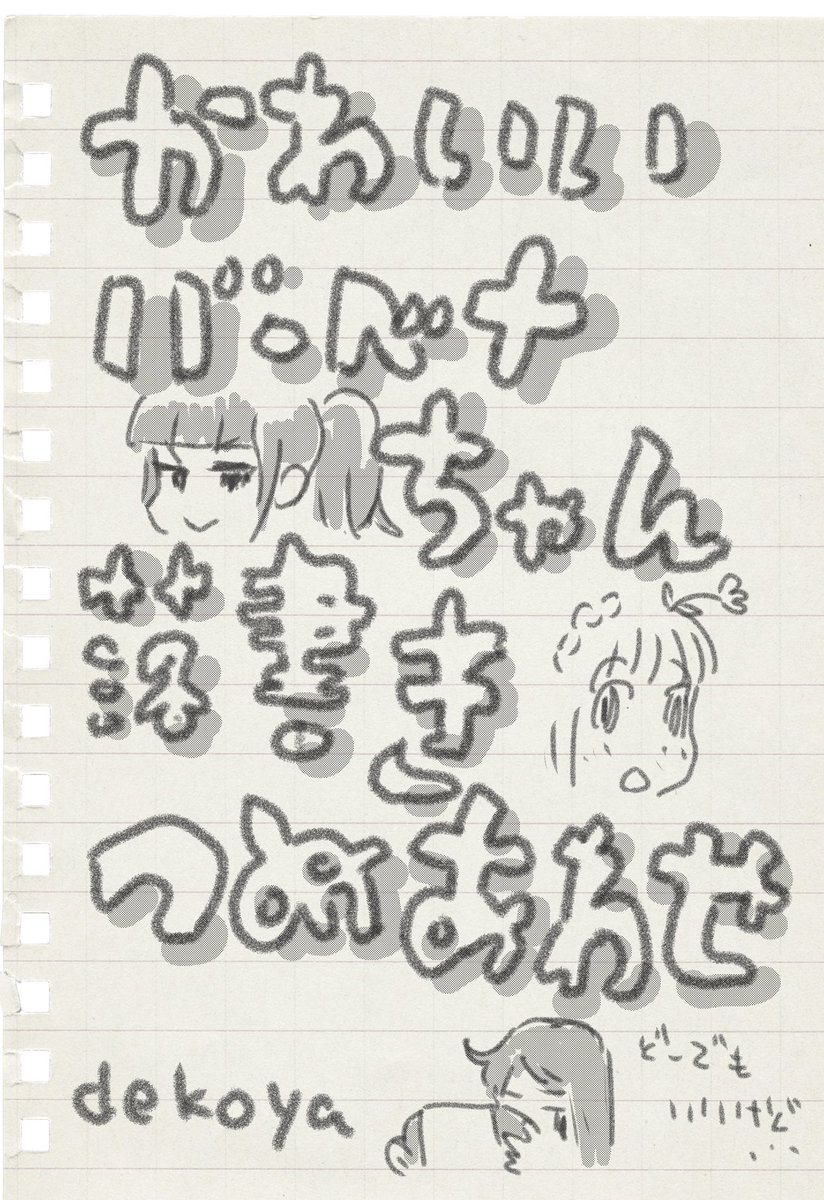 かわいい
バーベナ
ちゃん
落書き
つめあわせ
dekoya
どーでも
いいけど
...